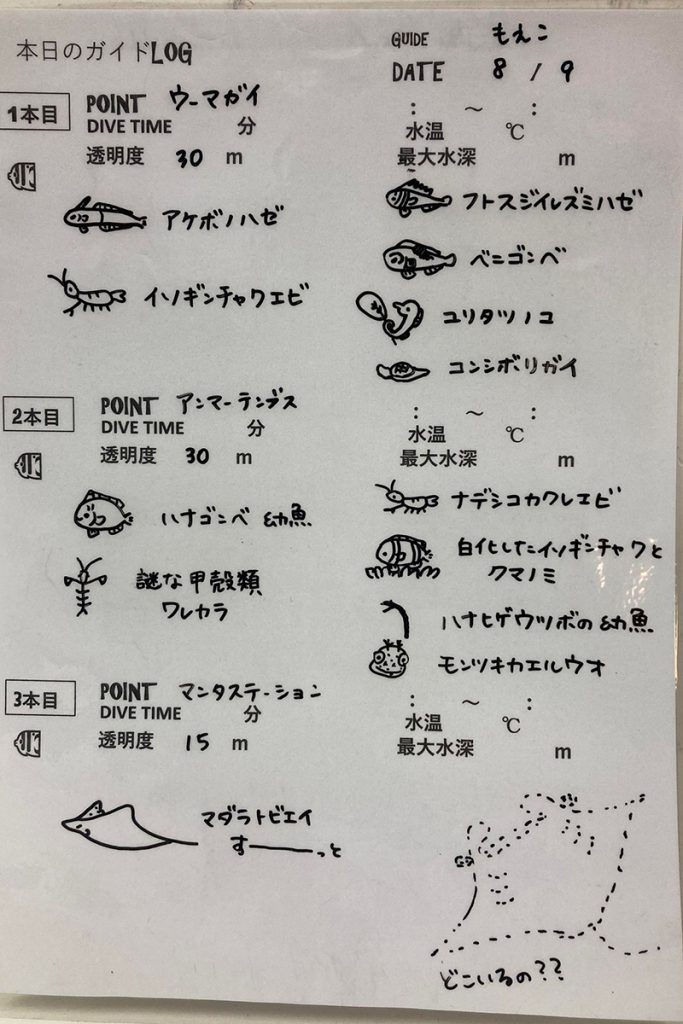 本日のガイドLOG
GUIDE もえこ
DATE 8 / 9
1本目
POINT ウーマガイ
DIVE TIME 分
: ～ :
水温 ℃
透明度 30 m
最大水深 m
アケボノハゼ
イソギンチャクエビ
フトスジイレズミハゼ
ベニゴンベ
ユリタツノコ
コンシボリガイ
2本目
POINT アンマーテンブス
DIVE TIME 分
: ～ :
水温 ℃
透明度 30 m
最大水深 m
ハナゴンベ 幼魚
謎な甲殻類
ワレカラ
ナデシコカクレエビ
白化したイソギンチャクと
クマノミ
ハナヒゲウツボの幼魚
モンツキカエルウオ
3本目
POINT マンタステーション
DIVE TIME 分
: ～ :
水温 ℃
透明度 15 m
最大水深 m
マダラトビエイ
すーーーっと
どこいるの??